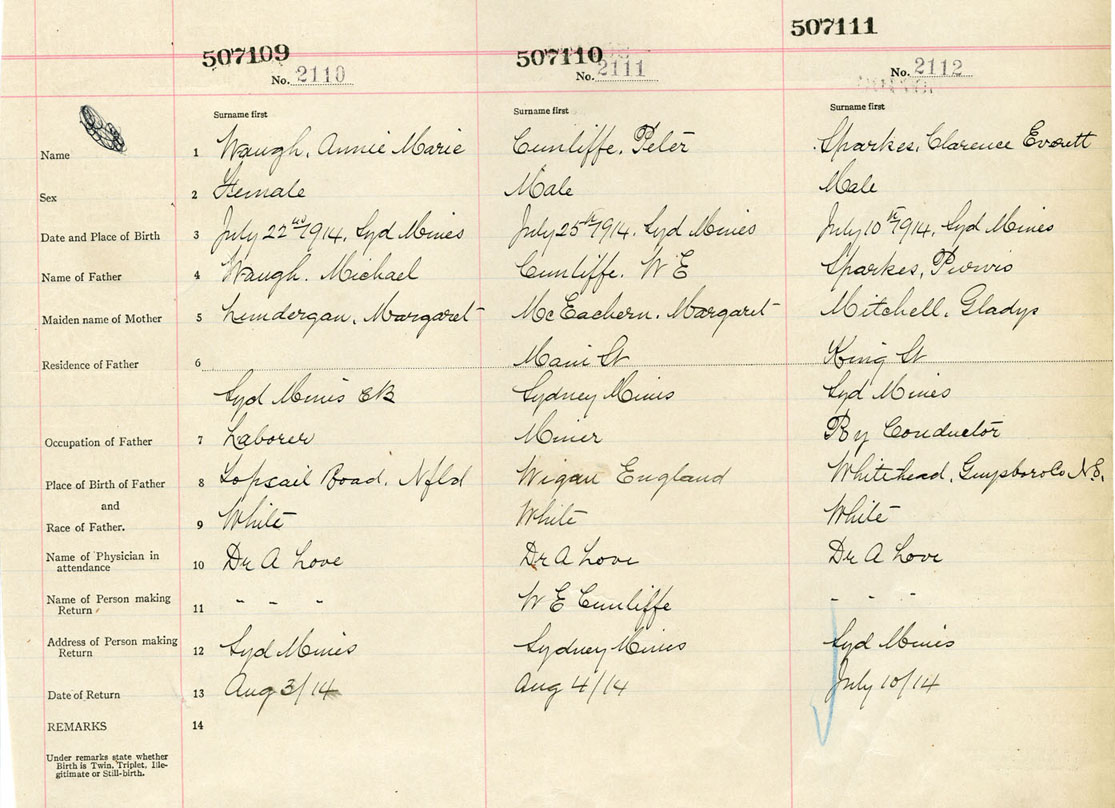 507109 507110 507111
No. 2110 No. 2111 No. 2112
Surname first Surname first Surname first
Name 1 Waugh, Annie Marie Cunliffe, Peter Sparkes, Clarence Everett
Sex 2 Female Male Male
Date and Place of Birth 3 July 22nd 1914, Syd Mines July 25th 1914, Syd Mines July 10th 1914, Syd Mines
Name of Father 4 Waugh, Michael Cunliffe, W E Sparkes, Purvis
Maiden name of Mother 5 Lundergan, Margaret McEachern, Margaret Mitchell, Gladys
Residence of Father 6 Main St King St
Syd Mines Sydney Mines Syd Mines
Occupation of Father 7 Laborer Miner Ry Conductor
Place of Birth of Father 8 Topsail Road, Nfld Wigan England Whitehead, Guysboro Co N.S.
and
Race of Father. 9 White White White
Name of Physician in
attendance 10 Dr A Love Dr A Love Dr A Love
Name of Person making
Return 11 - - - W E Cunliffe - - -
Address of Person making
Return 12 Syd Mines Sydney Mines Syd Mines
Date of Return 13 Aug 3/14 Aug 4/14 July 10/14
REMARKS 14
Under remarks state whether
Birth is Twin, Triplet, Ille-
gitimate or Still-birth.